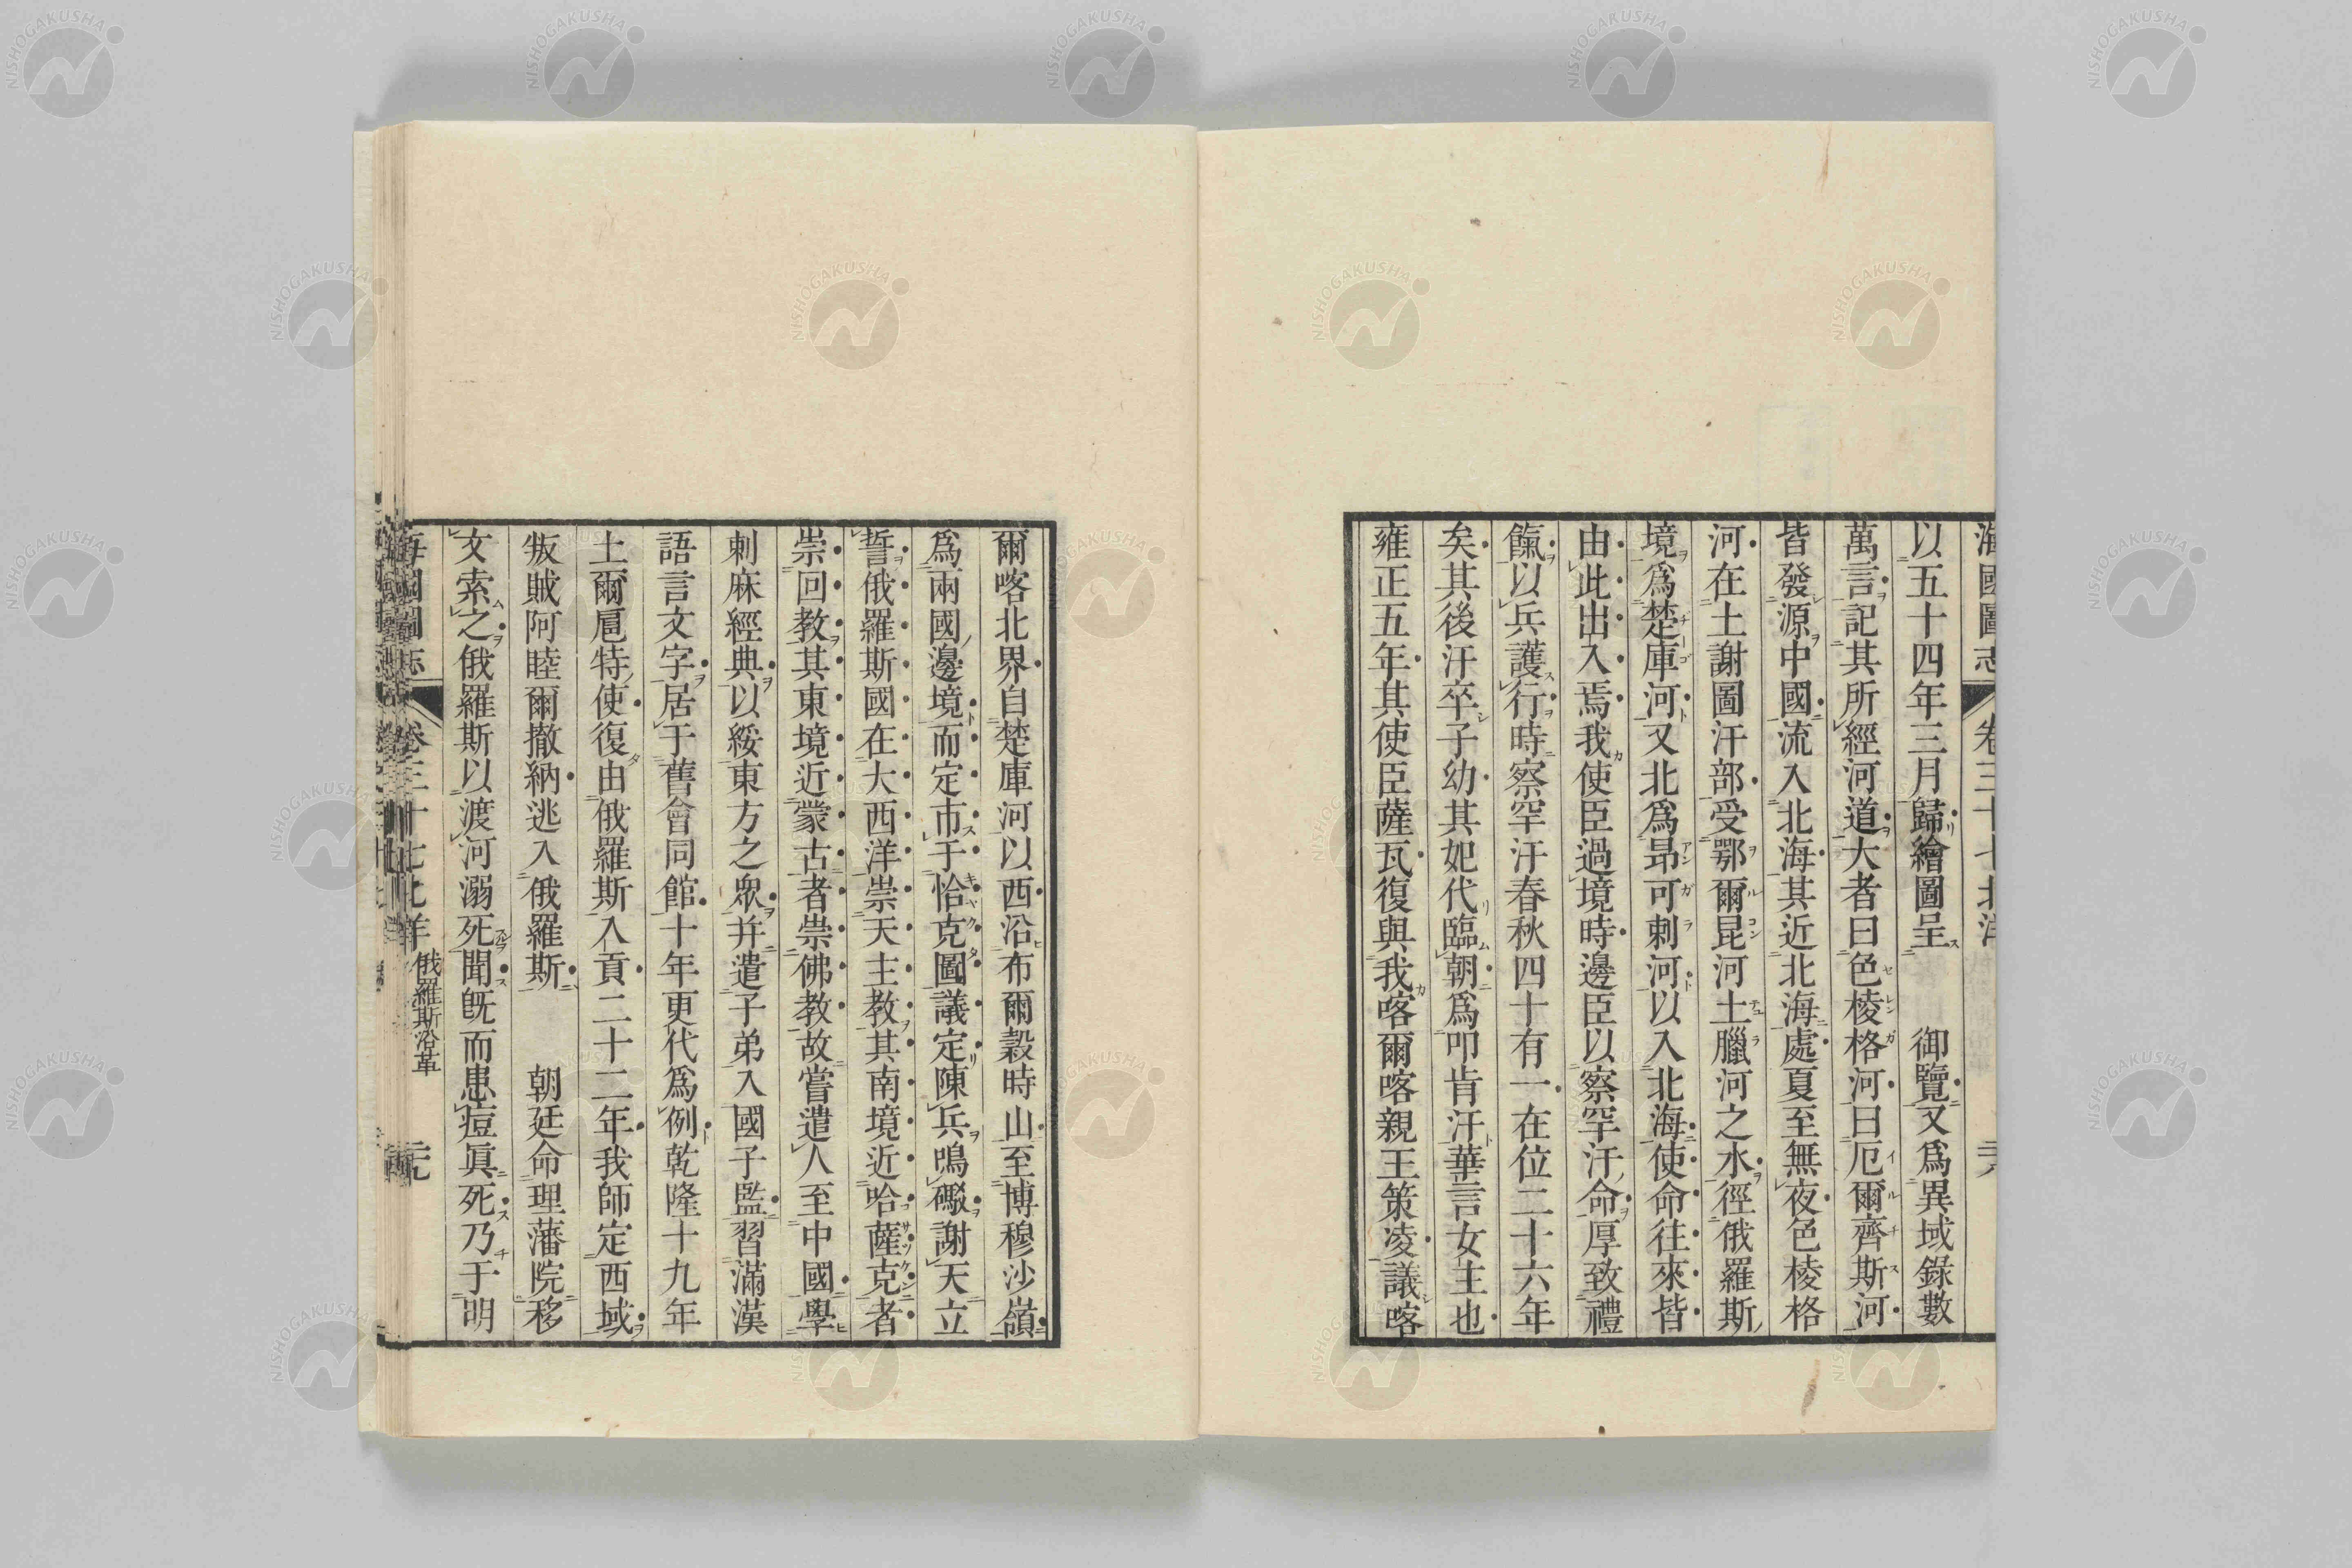 海國圖志 卷三十七 北洋 二十八
以五十四年三月歸繪圖呈 御覽又爲異域錄數
萬言記其所經河道大者曰色棱格河曰厄爾齊斯河
皆發源中國流入北海其近北海處夏至無夜色棱格
河在土謝圖汗部受鄂爾昆河土臘河之水徑俄羅斯
境爲楚庫河又北爲昻可剌河以入北海使命往來皆
由此出入焉我使臣過境時邊臣以察罕汗命厚致禮
餼以兵護行時察罕汗春秋四十有一在位二十六年
矣其後汗卒子幼其妃代臨朝爲叩肯汗華言女主也
雍正五年其使臣薩瓦復與我喀爾喀親王策凌議喀
爾喀北界自楚庫河以西沿布爾穀時山至博穆沙嶺
爲兩國邊境而定市于恰克圖議定陳兵鳴礮謝天立
誓俄羅斯國在大西洋崇天主教其南境近哈薩克者
崇回教其東境近蒙古者崇佛教故嘗遣人至中國學
剌麻經典以綏東方之衆并遣子弟入國子監習滿漢
語言文字居于舊會同館十年更代爲例乾隆十九年
土爾扈特使復由俄羅斯入貢二十二年我師定西域
叛賊阿睦爾撒納逃入俄羅斯 朝廷命理藩院移
文索之俄羅斯以渡河溺死聞旣而患痘眞死乃于明
海國圖志 卷三十七 北洋 俄羅斯沿革 二十九
NISHOGAKUSHA